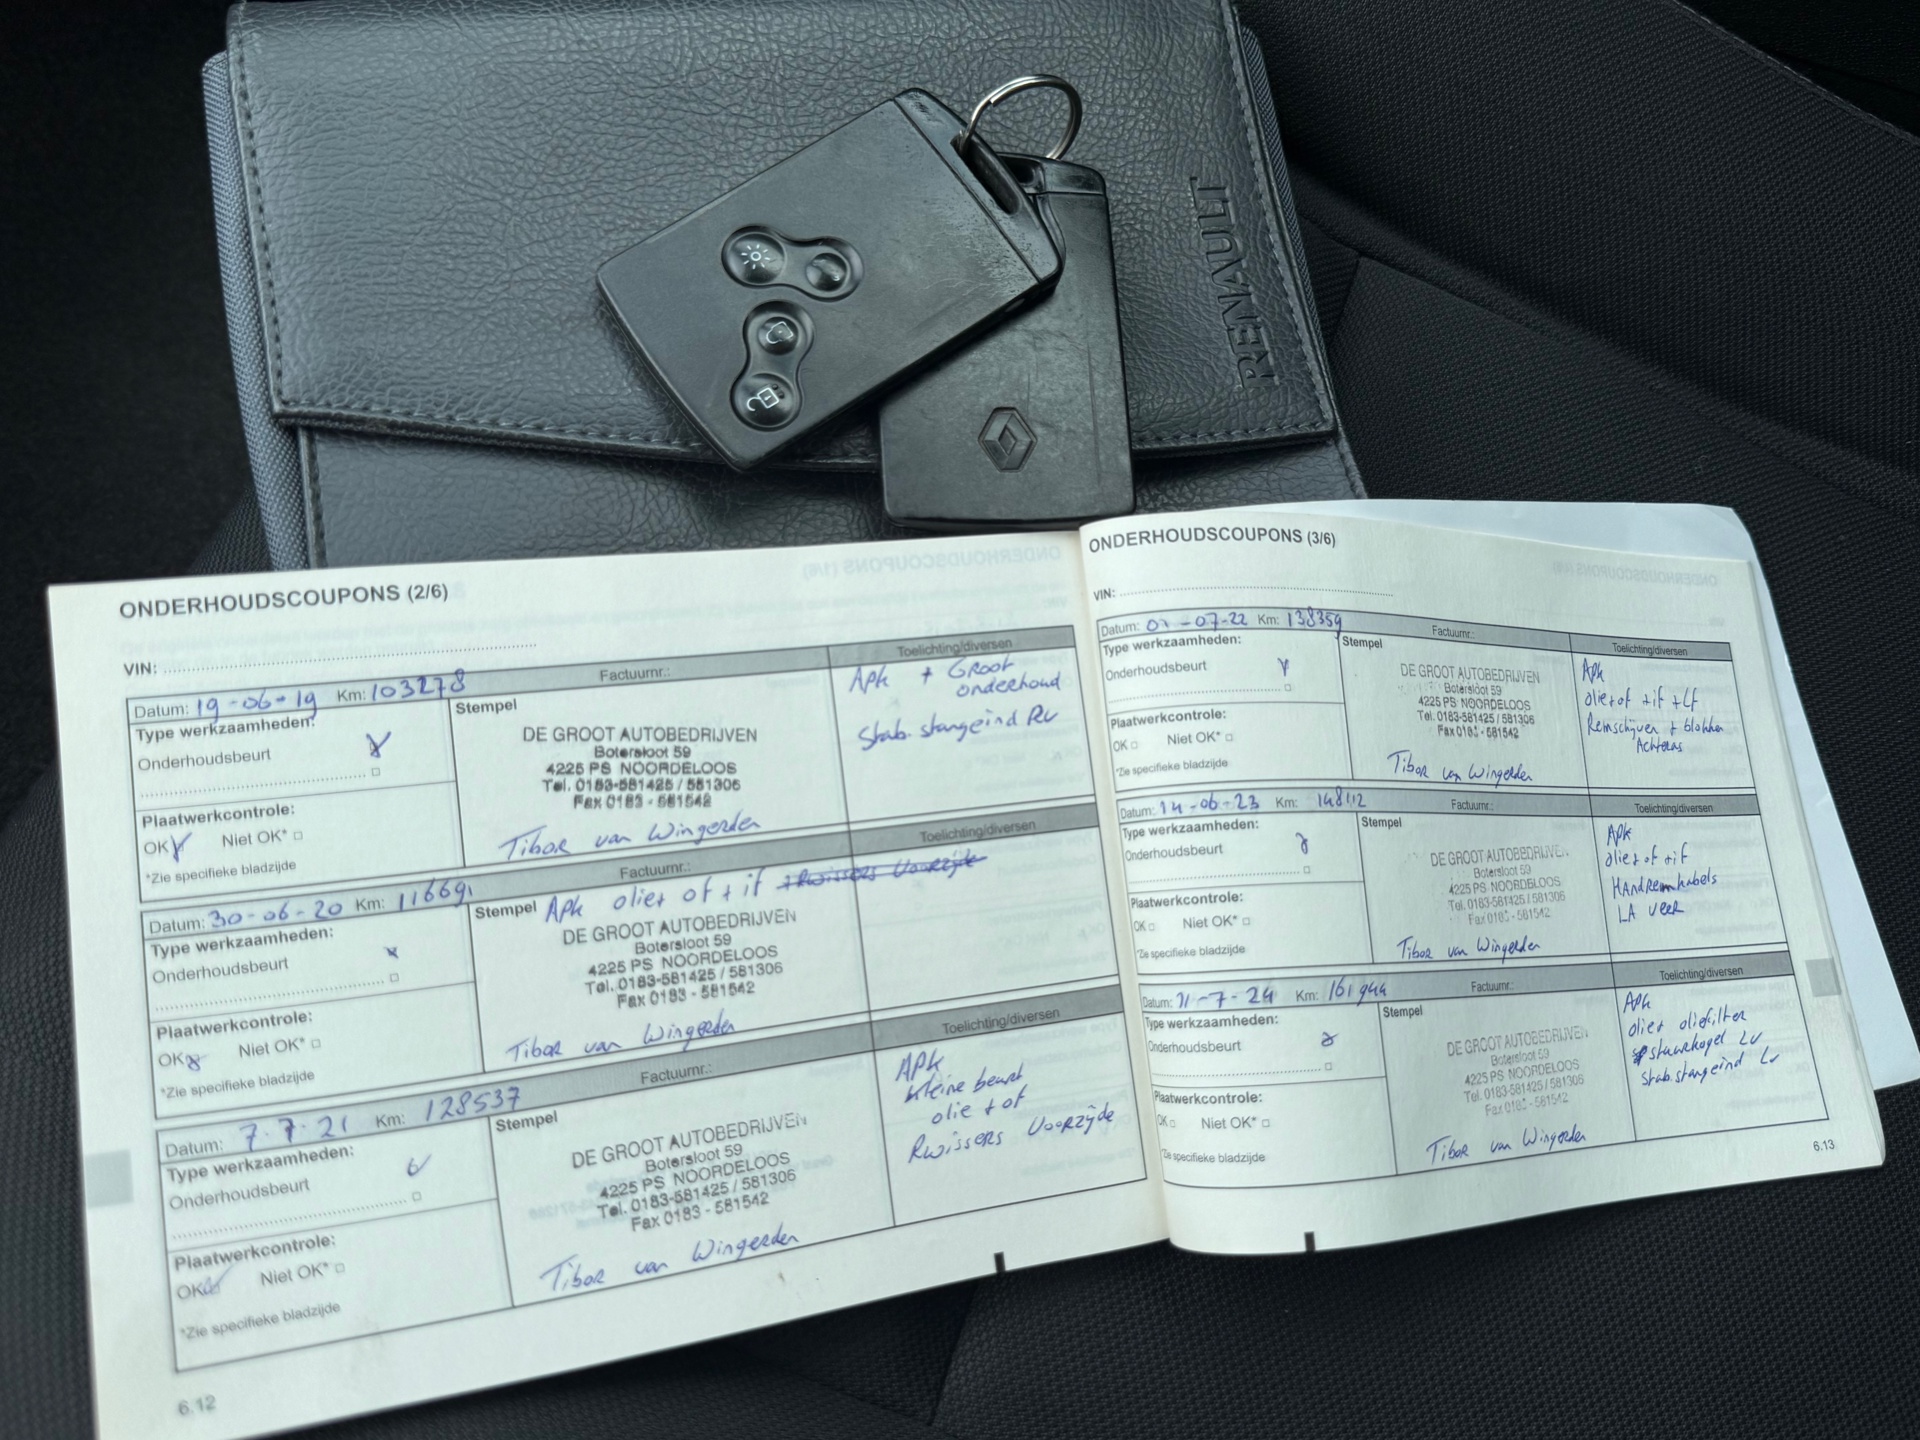 RENAULT
ONDERHOUDSCOUPONS (2/6)
VIN:
Datum: 19-06-19 Km: 103278 Factuurnr.: Toelichting/diversen
Type werkzaamheden:
Onderhoudsbeurt
Plaatwerkcontrole:
OK Niet OK*
*Zie specifieke bladzijde
Stempel
DE GROOT AUTOBEDRIJVEN
Botersloot 59
4225 PS NOORDELOOS
Tel. 0183-581425 / 581306
Fax 0183 - 581542
Tibor van Wingerden
Apk + Groot
onderhoud
Stab. stangeind RV
Datum: 30-06-20 Km: 116691 Factuurnr.: Toelichting/diversen
Type werkzaamheden:
Onderhoudsbeurt
Plaatwerkcontrole:
OK Niet OK*
*Zie specifieke bladzijde
Stempel Apk olie+ of + if +Rwissers Voorzijde
DE GROOT AUTOBEDRIJVEN
Botersloot 59
4225 PS NOORDELOOS
Tel. 0183-581425 / 581306
Fax 0183 - 581542
Tibor van Wingerden
Datum: 7-7-21 Km: 128537 Factuurnr.: Toelichting/diversen
Type werkzaamheden:
Onderhoudsbeurt
Plaatwerkcontrole:
OK Niet OK*
*Zie specifieke bladzijde
Stempel
DE GROOT AUTOBEDRIJVEN
Botersloot 59
4225 PS NOORDELOOS
Tel. 0183-581425 / 581306
Fax 0183 - 581542
Tibor van Wingerden
APK
kleine beurt
olie + of
Rwissers Voorzijde
6.12
ONDERHOUDSCOUPONS (3/6)
VIN:
Datum: 01-07-22 Km: 138359 Factuurnr.: Toelichting/diversen
Type werkzaamheden:
Onderhoudsbeurt
Plaatwerkcontrole:
OK Niet OK*
*Zie specifieke bladzijde
Stempel
DE GROOT AUTOBEDRIJVEN
Botersloot 59
4225 PS NOORDELOOS
Tel. 0183-581425 / 581306
Fax 0183 - 581542
Tibor van Wingerden
Apk
olie+of +if +Lf
Remschijven + blokken
Achteras
Datum: 14-06-23 Km: 148112 Factuurnr.: Toelichting/diversen
Type werkzaamheden:
Onderhoudsbeurt
Plaatwerkcontrole:
OK Niet OK*
*Zie specifieke bladzijde
Stempel
DE GROOT AUTOBEDRIJVEN
Botersloot 59
4225 PS NOORDELOOS
Tel. 0183-581425 / 581306
Fax 0183 - 581542
Tibor van Wingerden
Apk
olie+ of +if
HAndRemkabels
LA veer
Datum: 11-7-24 Km: 161944 Factuurnr.: Toelichting/diversen
Type werkzaamheden:
Onderhoudsbeurt
Plaatwerkcontrole:
OK Niet OK*
*Zie specifieke bladzijde
Stempel
DE GROOT AUTOBEDRIJVEN
Botersloot 59
4225 PS NOORDELOOS
Tel. 0183-581425 / 581306
Fax 0183 - 581542
Tibor van Wingerden
APK
olie+ oliefilter
stuurkogel LV
stab.stangeind LV
6.13